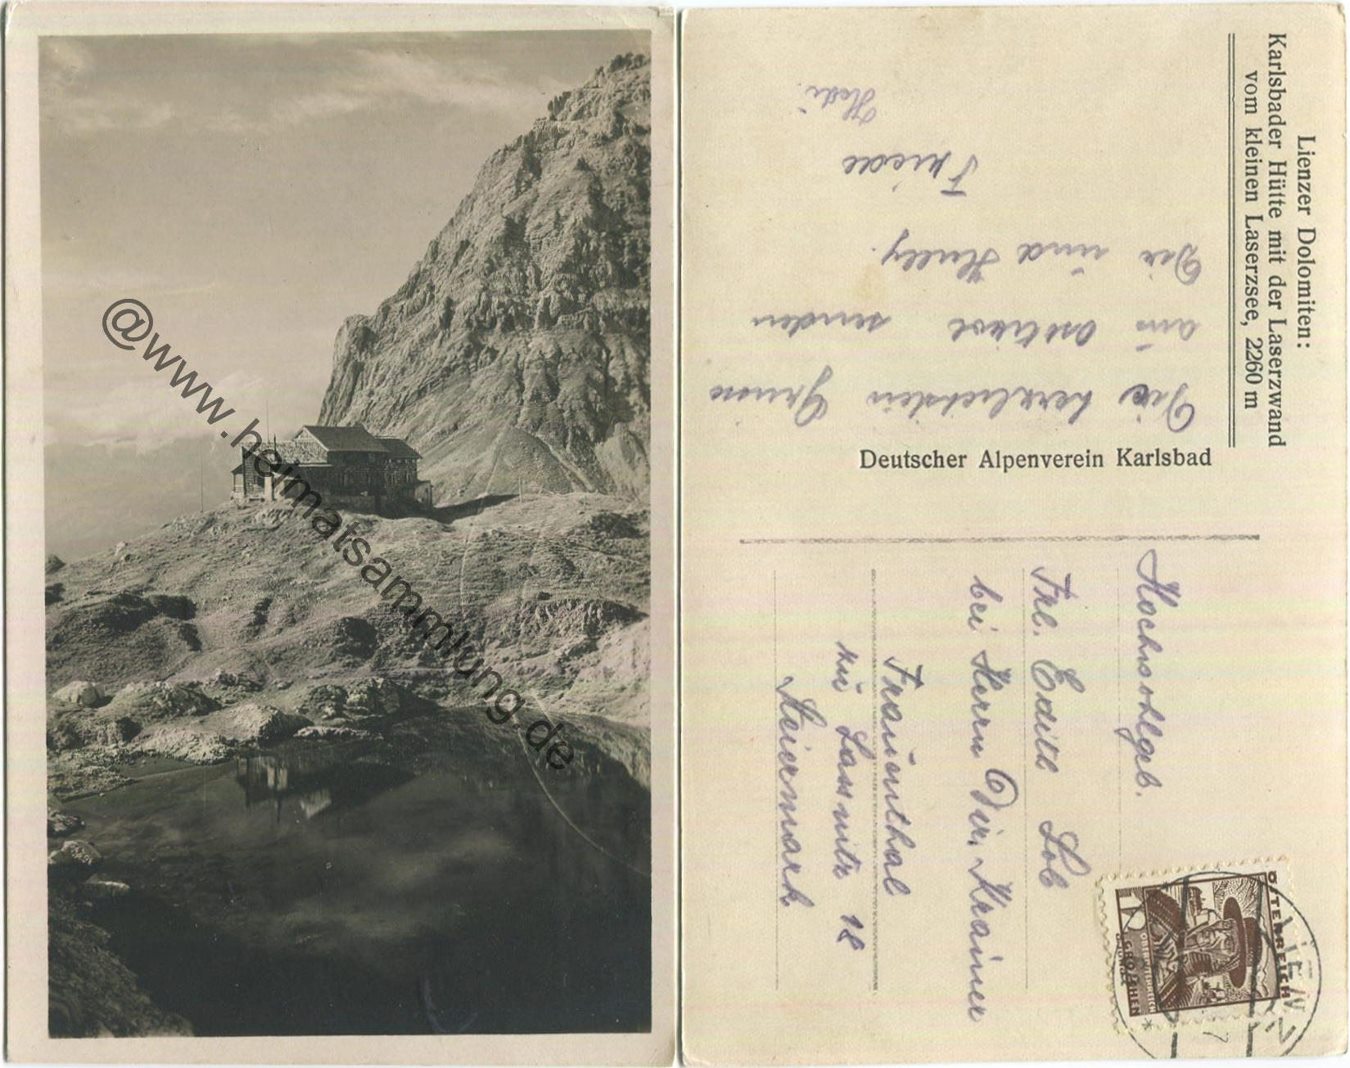 @www.heimatsammlung.de
Lienzer Dolomiten:
Karlsbader Hütte mit der Laserzwand
vom kleinen Laserzsee, 2260 m
Deutscher Alpenverein Karlsbad
Die herzlichsten Grüsse
aus Osttirol senden
Dir und Hully.
Friedo
Hedi
Hochwohlgeb.
Frl. Edith Lob
bei Herrn Dir. Krainer
Frauenthal
Lassnitz 12
Steiermark
ÖSTERREICH
GROSCHEN
LIENZ